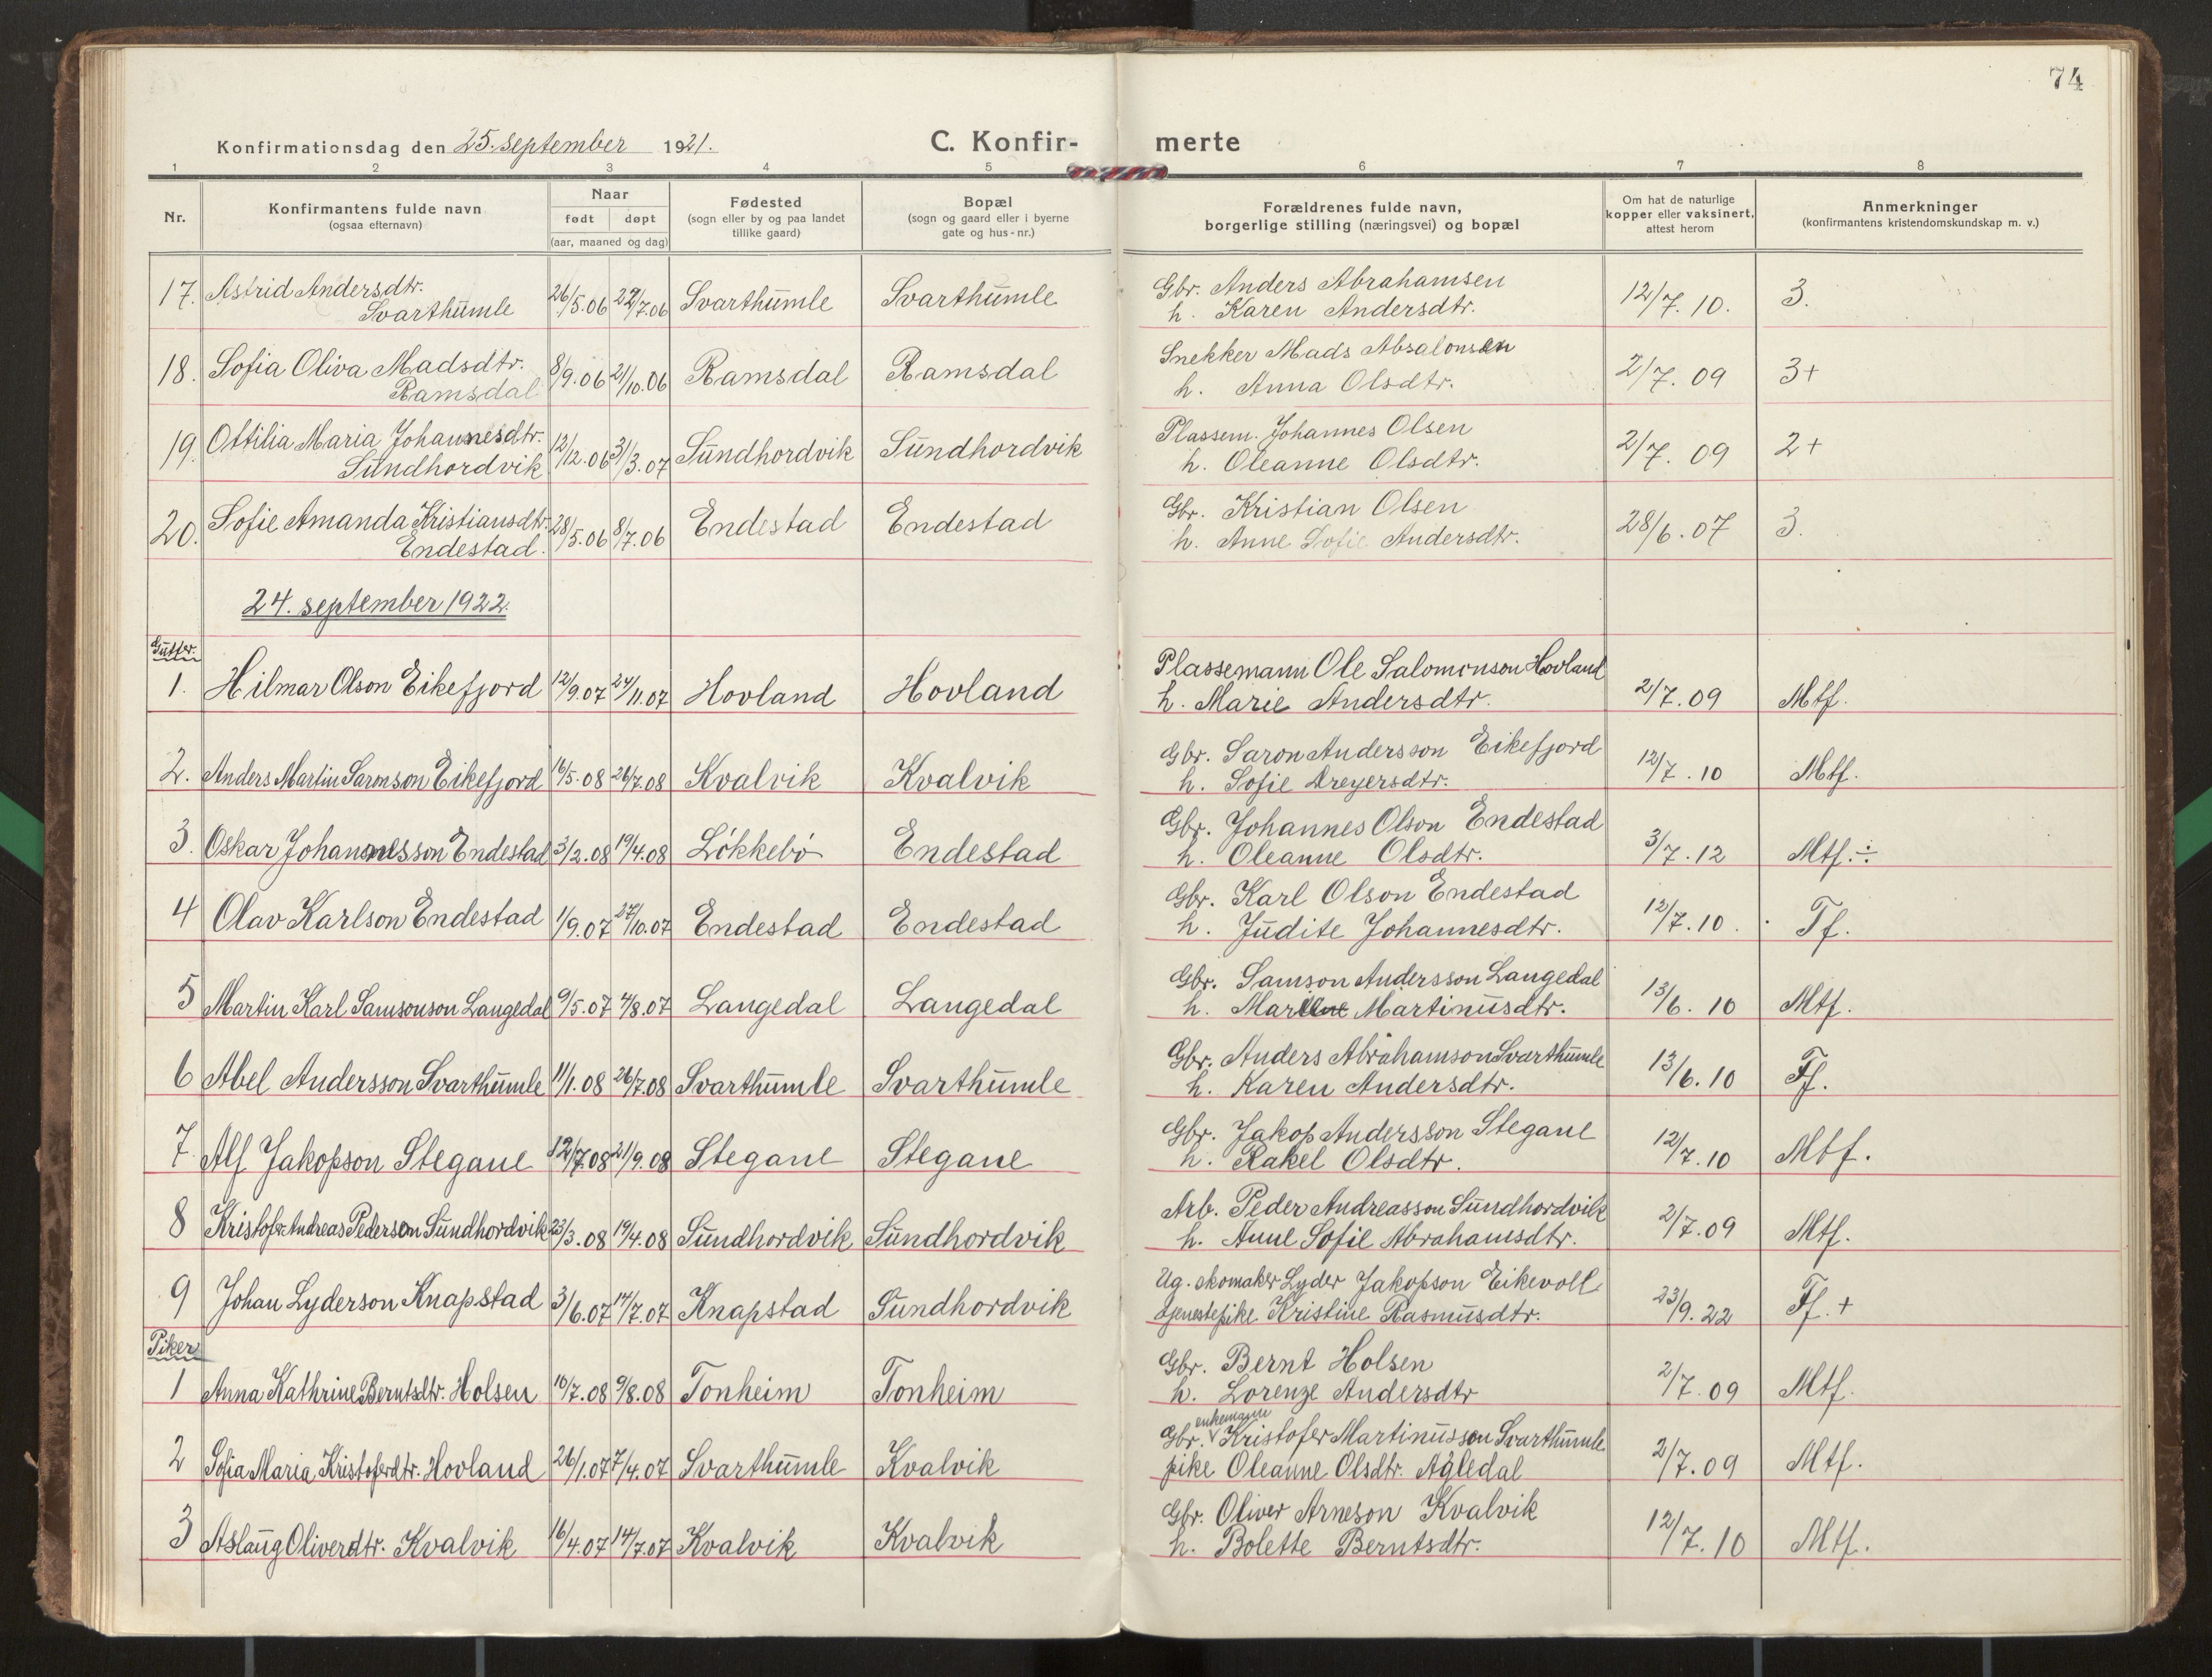 74
Konfirmationsdag den 25. september 1921.
C. Konfirmerte
1 2 3 4 5 6 7 8
Nr.
Konfirmantens fulde navn
(ogsaa efternavn)
Naar
født døpt
(aar, maaned og dag)
Fødested
(sogn eller by og paa landet
tillike gaard)
Bopæl
(sogn og gaard eller i byerne
gate og hus-nr.)
Forældrenes fulde navn,
borgerlige stilling (næringsvei) og bopæl
Om hat de naturlige
kopper eller vaksinert,
attest herom
Anmerkninger
(konfirmantens kristendomskundskap m. v.)
17. Astrid Andersdtr. 26/5.06 22/7.06 Svarthumle Svarthumle Gbr. Anders Abrahamsen 12/7. 10. 3.
Svarthumle h. Karen Andersdtr.
18. Sofia Oliva Madsdtr. 8/9.06 21/10.06 Ramsdal Ramsdal Snekker Mads Absalonsen 2/7. 09 3+
Ramsdal h. Anna Olsdtr.
19. Ottilia Maria Johannesdtr. 12/12.06 31/3.07 Sundhordvik Sundhordvik Plassem. Johannes Olsen 2/7. 09 2+
Sundhordvik h. Oleanne Olsdtr.
20. Sofie Amanda Kristiansdtr. 28/5.06 8/7.06 Endestad Endestad Gbr. Kristian Olsen 28/6.07 3.
Endestad. h. Anne Sofie Andersdtr.
24. september 1922.
Gutter.
1. Hilmar Olson Eikefjord 12/9.07 24/11.07 Hovland Hovland Plassemann Ole Salomonson Hovland 2/7.09 Mtf.
h. Marie Andersdtr.
2. Anders Martin Saronson Eikefjord 16/5.08 26/7.08 Kvalvik Kvalvik Gbr. Saron Andersson Eikefjord 12/7.10 Mtf.
h. Sofie Dreyersdtr.
3. Oskar Johannesson Endestad 3/2.08 19/4.08 Løkkebø Endestad Gbr. Johannes Olson Endestad 3/7.12 Mtf.÷
h. Oleanne Olsdtr.
4 Olav Karlson Endestad 1/9.07 27/10.07 Endestad Endestad Gbr. Karl Olson Endestad 12/7.10. Tf.
h. Judite Johannesdtr.
5 Martin Karl Samsonson Langedal 9/5.07 4/8.07 Langedal Langedal Gbr. Samson Andersson Langedal 13/6.10 Mtf.
h. Martinusdtr.
6 Abel Andersson Svarthumle 11/1.08 26/7.08 Svarthumle Svarthumle Gbr. Anders Abrahamson Svarthumle 13/6.10 Tf.
h. Karen Andersdtr.
7. Alf Jakopson Stegane 12/7.08 21/9.08 Stegane Stegane Gbr. Jakop Andersson Stegane 12/7.10 Mtf.
h. Rakel Olsdtr.
8 Kristofer Andreas Pederson Sundhordvik 23/3.08 19/4.08 Sundhordvik Sundhordvik Arb. Peder Andreasson Sundhordvik 2/7.09 Mtf.
h. Anne Sofie Abrahamsdtr.
9 Johan Lyderson Knapstad 3/6.07 14/7.07 Knapstad Sundhordvik Ug. skomaker Lyder Jakopson Eikevoll 23/9.22 Tf.+
tjenestepike Kristine Rasmusdtr.
Piker
1 Anna Kathrine Berntsdtr. Holsen 10/7.08 9/8.08 Tonheim Tonheim Gbr. Bernt Holsen 2/7.09 Mtf.
h. Lorenze Andersdtr
2 Sofia Maria Kristoferdtr. Hovland 26/1.07 7/4.07 Svarthumle Kvalvik Gbr. enkemann Kristofer Martinusson Svarthumle 2/7.09 Mtf.
pike Oleanne Olsdtr. Agledal
3 Aslaug Oliverdtr. Kvalvik 16/4.07 14/7.07 Kvalvik Kvalvik Gbr. Oliver Arneson Kvalvik 12/7.10 Mtf.
h. Bolette Berntsdtr.